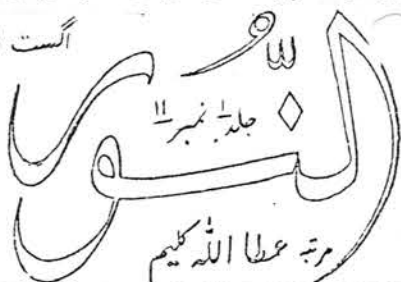 اگست
النّور
جلد ۱ نمبر ۱۱
مرتبہ عطا اللہ کلیم